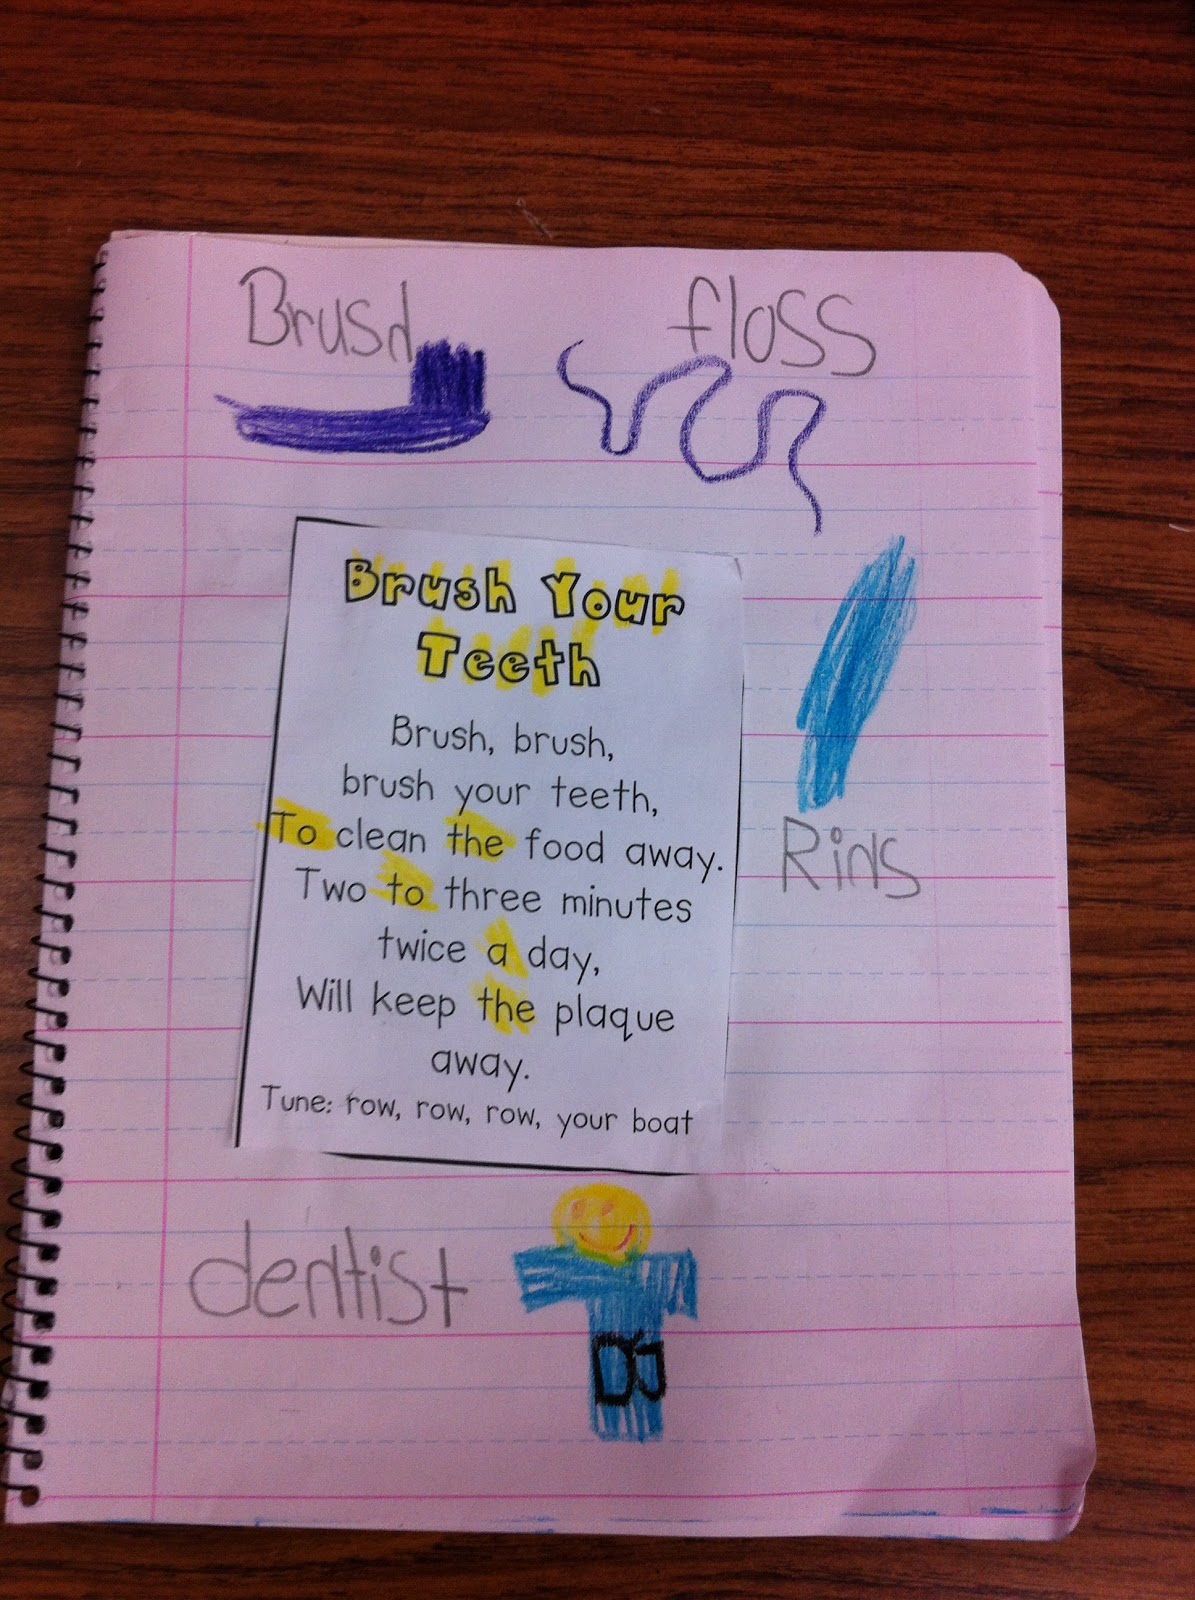 Brush
floss
Brush Your
Teeth
Brush, brush,
brush your teeth,
To clean the food away.
Two to three minutes
twice a day,
Will keep the plaque
away.
Tune: row, row, row, your boat
Rins
dentist